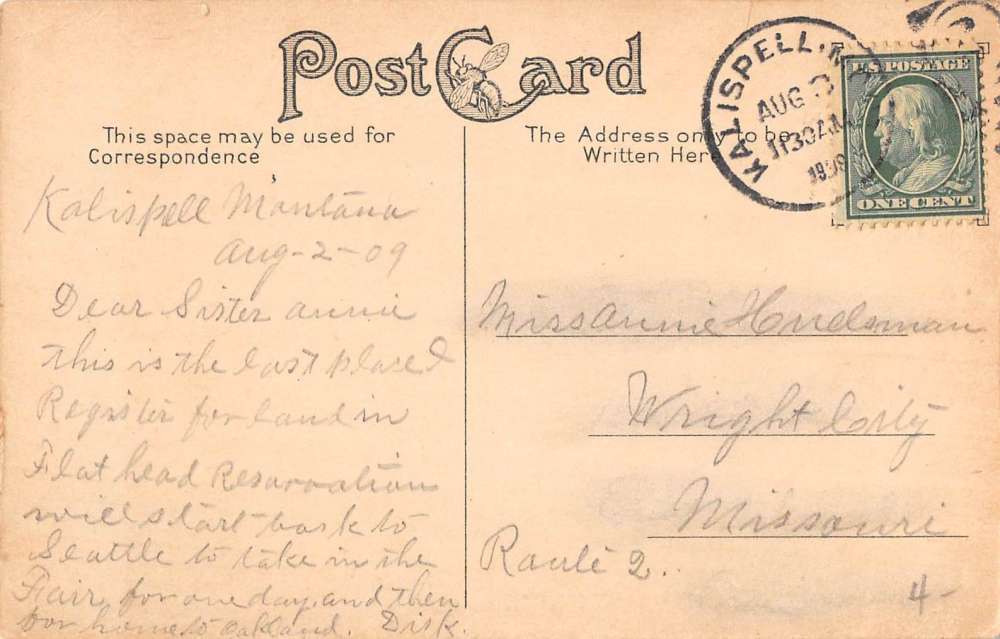 Post Card
This space may be used for
Correspondence
The Address only to be
Written Here
KALISPELL, M
AUG
1130 AM
1909
U.S. POSTAGE
ONE CENT
Kalispell Montana
Aug-2-09
Dear Sister annie
this is the last place I
Register for land in
Flat head Resarvation
will start back to
Seattle to take in the
Fair for one day. and then
for home to Oakland. Disk.
Miss annie Hudsman
Wright City
Missouri
Route 2.
4-